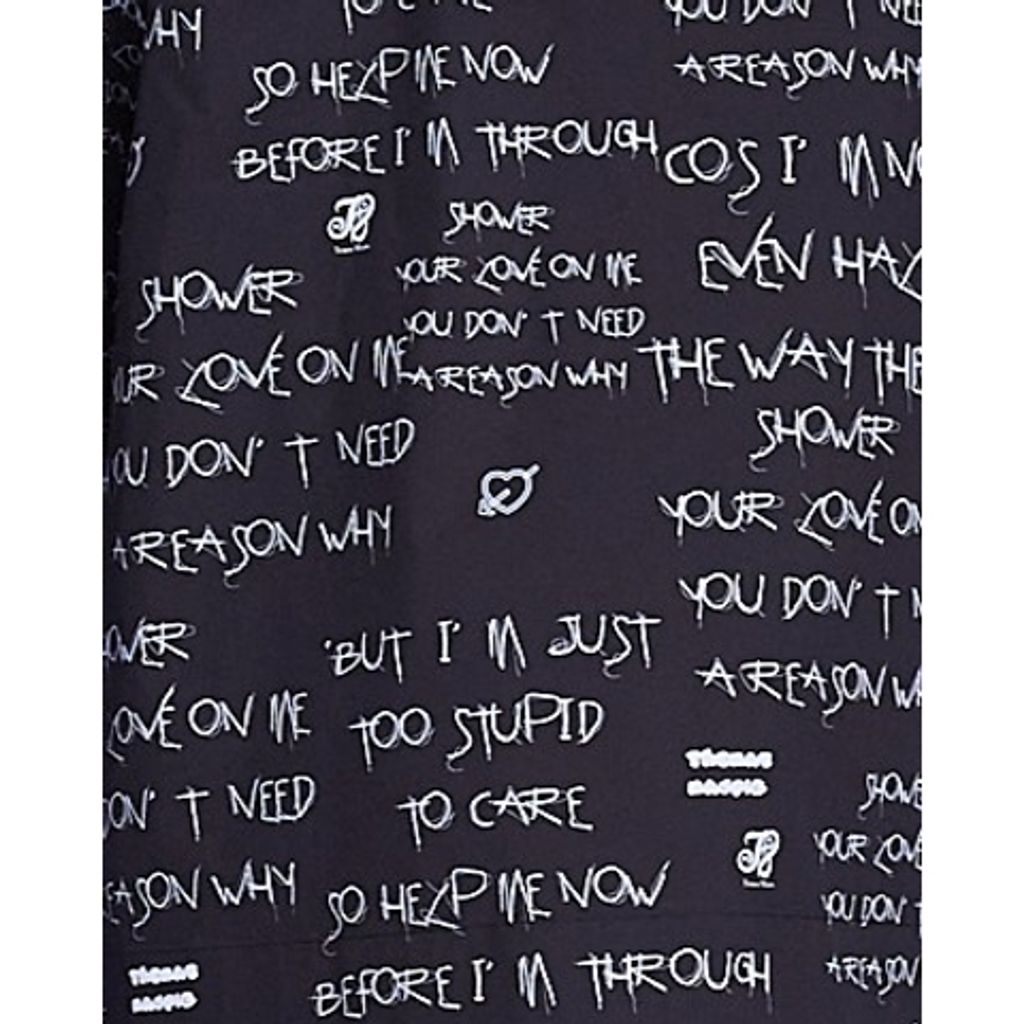 WHY
TO
ME
YOU DON'T NEE
A REASON WHY
SO HELP ME NOW
BEFORE I'M THROUGH
COS I'M N
SHOWER
YOUR LOVE ON ME
YOU DON'T NEED
A REASON WHY
EVEN HA
THE WAY THE
SHOWER
UR LOVE ON ME
OU DON'T NEED
A REASON WHY
SHOWER
YOUR LOVE ON
YOU DON'T N
A REASON WH
OWER
LOVE ON ME
ON'T NEED
EASON WHY
'BUT I'M JUST
TOO STUPID
TO CARE
SO HELP ME NOW
BEFORE I'M THROUGH
THOMAS
SHOWE
YOUR LOVE
YOU DON'T
A REASON
THOMAS